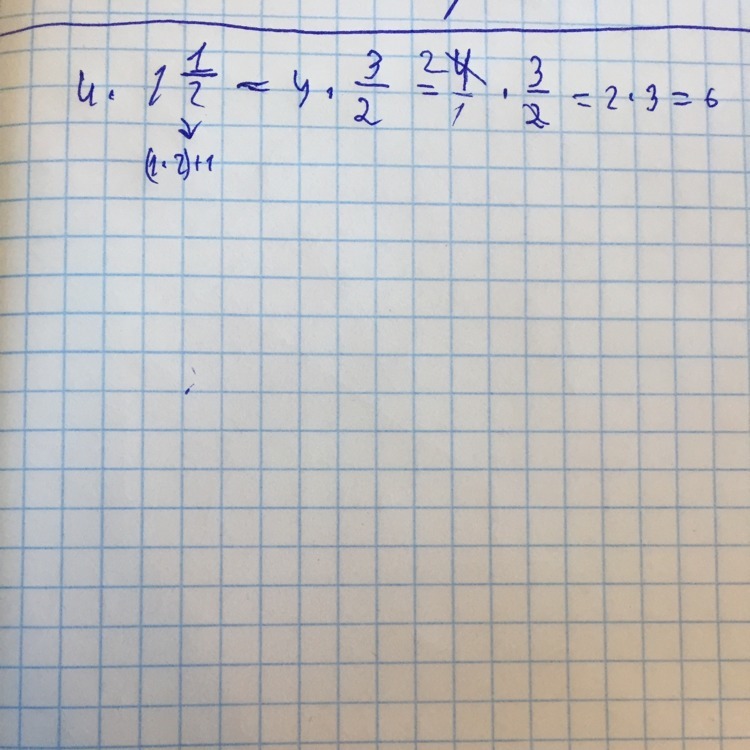 4 · 1 1/2 = 4 · 3/2 = 2 4/1 · 3/2 = 2 · 3 = 6
(1 · 2) + 1